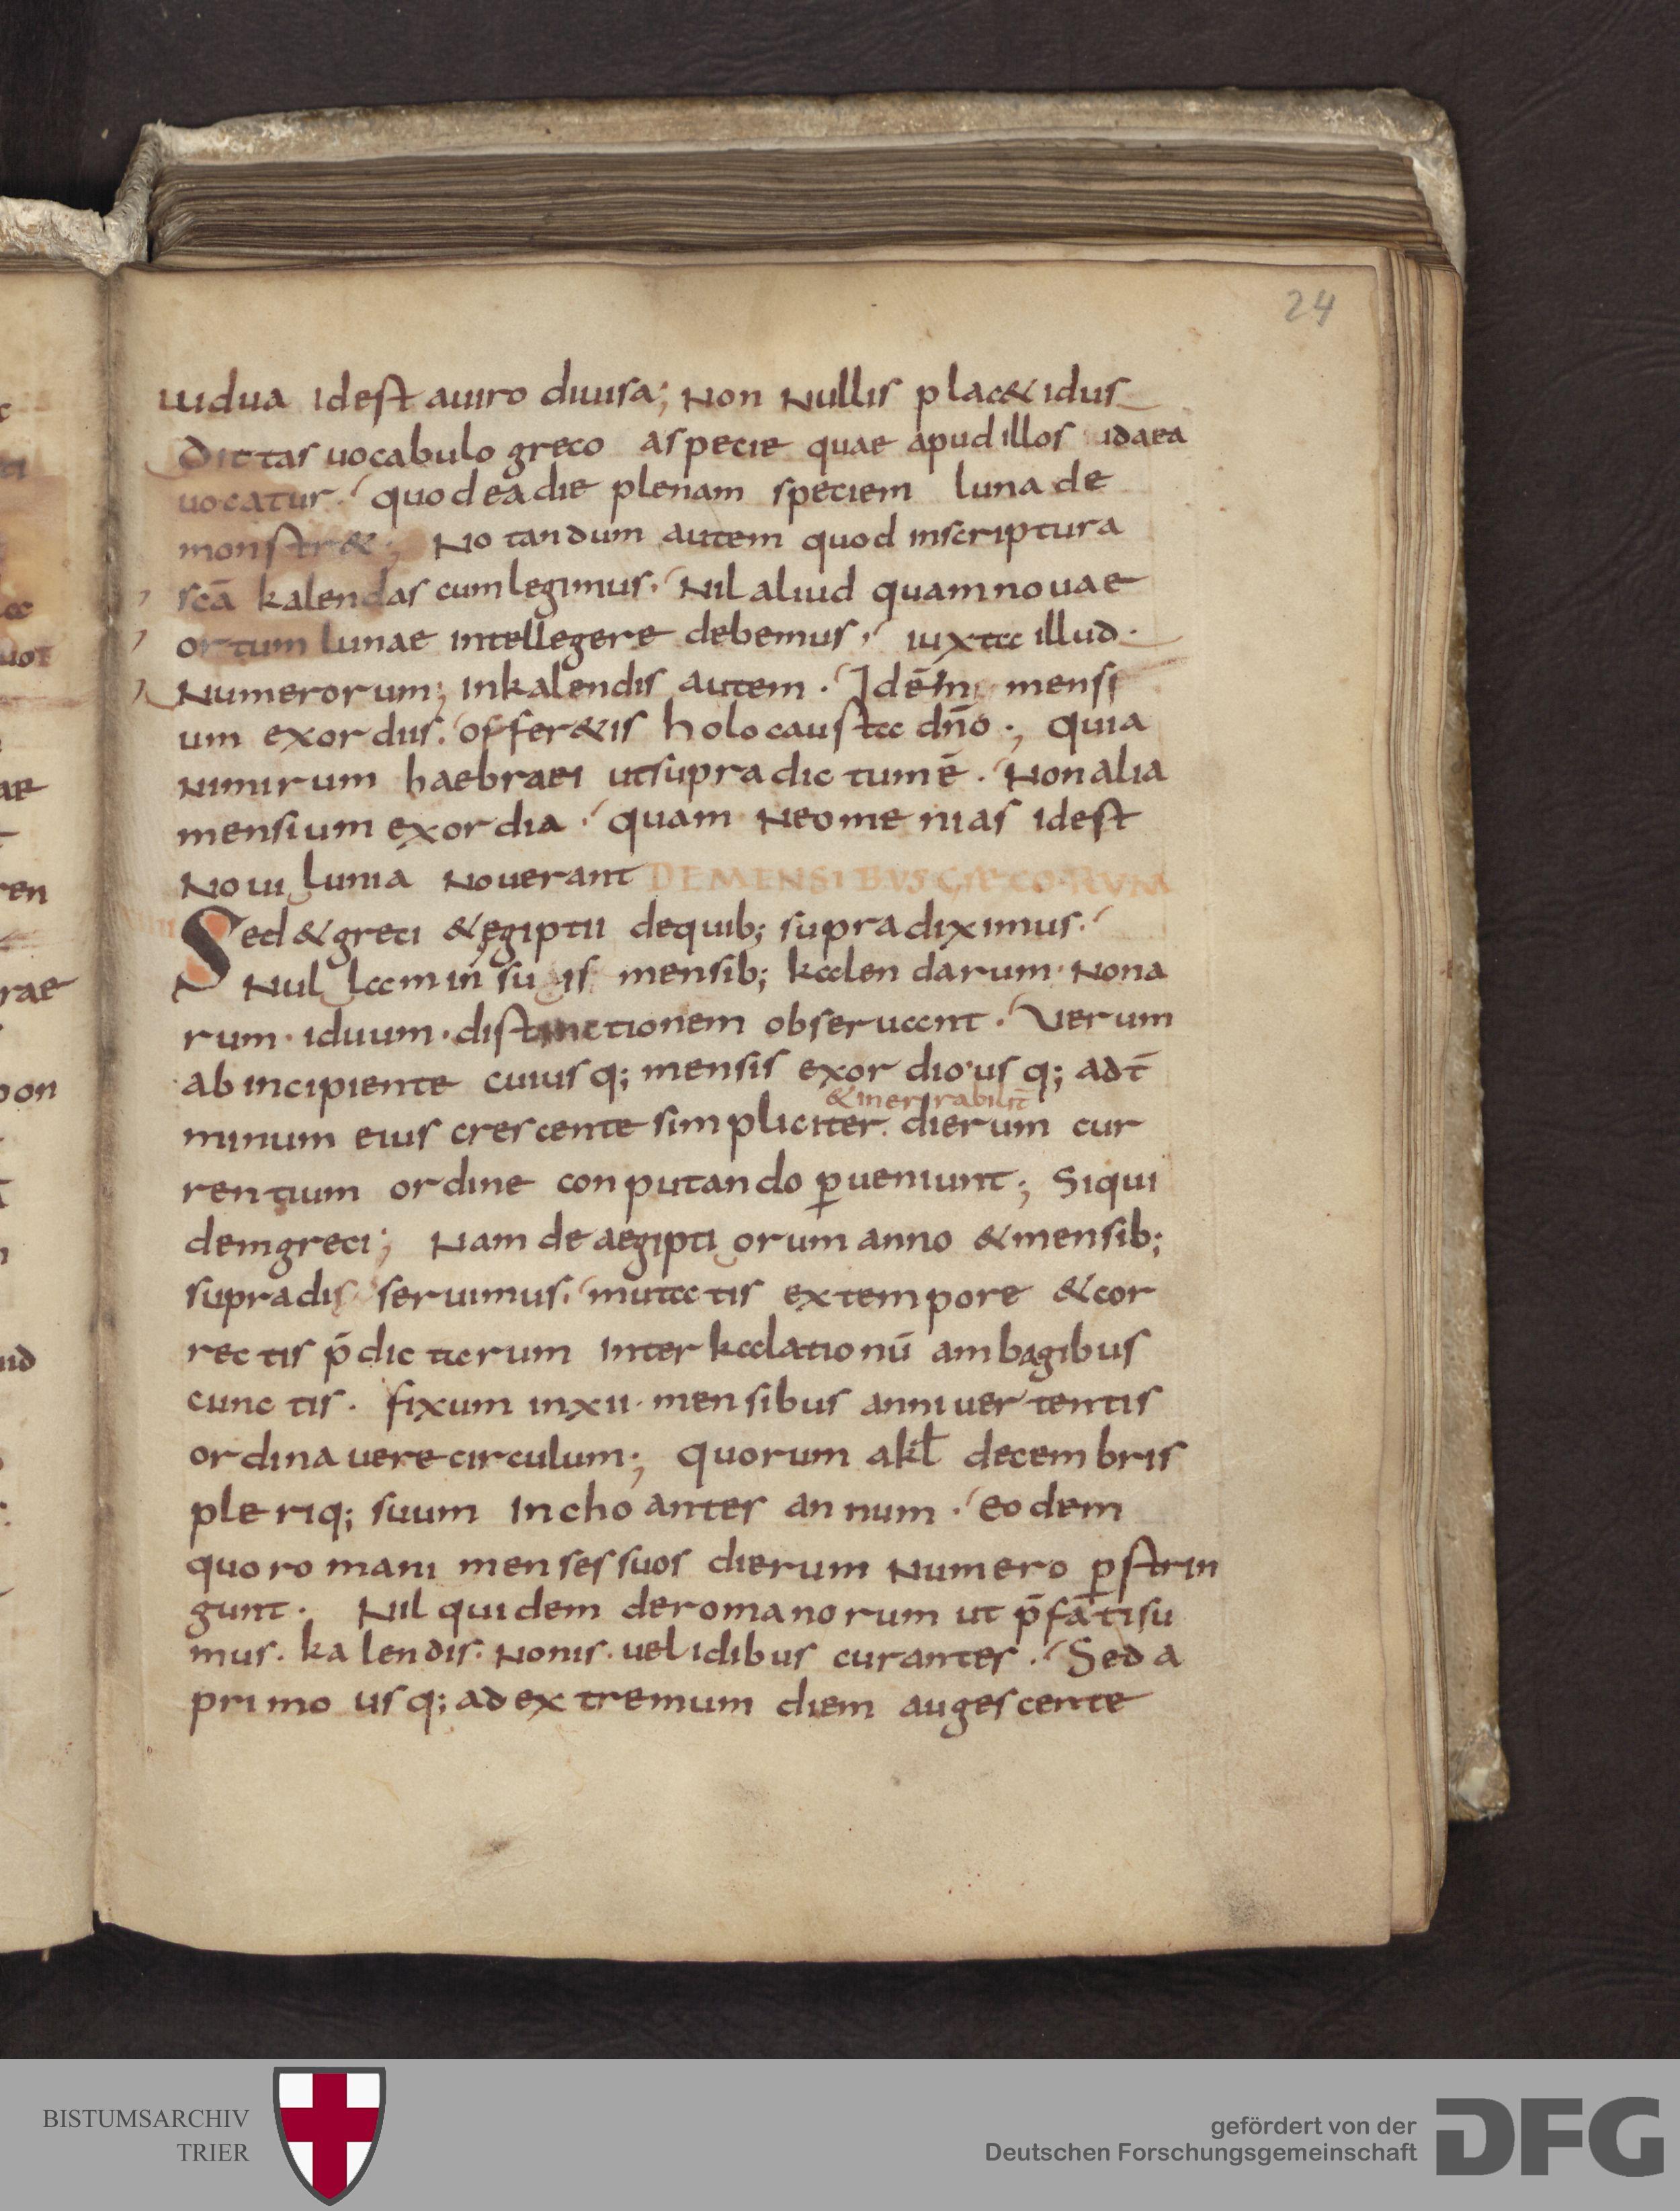 24
uidua idest auiro diuisa; Non Nullis plac& idus
Dictas uocabulo greco aspecie quae apud illos idaea
uocatur. quod ea die plenam speciem luna de
monstr&; Notandum autem quod inscriptura
scā kalendas cum legimus. Nil aliud quam nouae
ortum lunae intellegere debemus, iuxta illud.
Numerorum; inkalendis autem. Idē̄ in mensi
um exordiis. offer&is holocausta dn̄o; quia
nimirum haebraei utsupra dictum ē. Non alia
mensium exordia. quam Neomenias idest
Noui lunia Nouerant DEMENSIBUS GRECORUM
Sed & greci & egiptii dequib; supra diximus.
Nullam in suis mensib; kalendarum. Nona
rum. iduum. distinctionem obseruant. Verum
ab incipiente cuiusq; mensis exordio usq; ad t̄
& inerrabilit̄
minum eius crescente simpliciter dierum cur
rentium ordine conputando ꝑueniunt; Siqui
dem greci; Nam de aegiptiorum anno & mensib;
supra disseruimus. mutatis extempore & cor
rectis p̄dictarum interkalationū ambagibus
cunctis. fixum inxii. mensibus anni uertentis
ordinauere circulum; quorum akl̄ decembris
pleriq; suum inchoantes annum. eodem
quo romani menses suos dierum numero ꝑstrin
gunt. Nil quidem de romanorum ut p̄fati su
mus. kalendis. Nonis. uel idibus curantes. Sed a
primo usq; ad extremum diem augescente
BISTUMSARCHIV
TRIER
gefördert von der
Deutschen Forschungsgemeinschaft
DFG